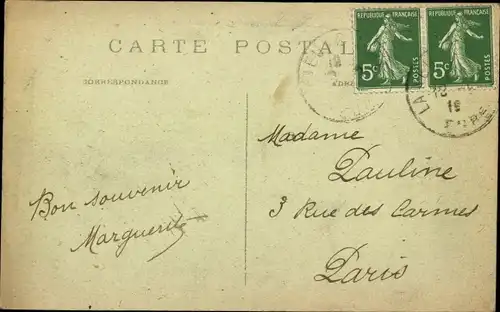 CARTE POSTALE
CORRESPONDANCE
REPUBLIQUE FRANÇAISE
5c
POSTES
REPUBLIQUE FRANÇAISE
5c
POSTES
19
Madame
Pauline
3 Rue des Carmes
Paris
Bon souvenir
Marguerite